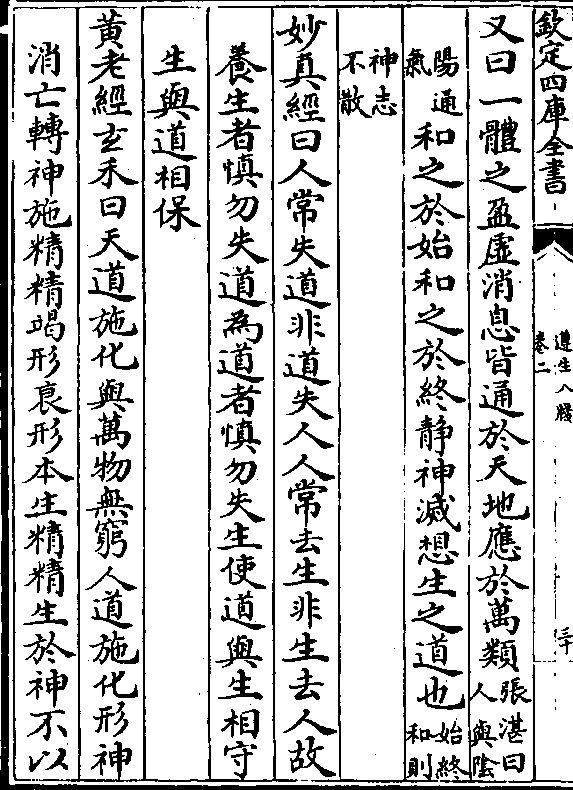 欽定四庫全書
遵生八牋
卷二
三十
又曰一體之盈虛消息皆通於天地應於萬類張湛曰人與陰
陽通氣和之於始和之於終靜神滅想生之道也始終和則
神志不散
妙真經曰人常失道非道失人人常去生非生去人故
養生者慎勿失道為道者慎勿失生使道與生相守
生與道相保
黃老經玄禾曰天道施化與萬物無窮人道施化形神
消亡轉神施精精竭形衰形本生精精生於神不以